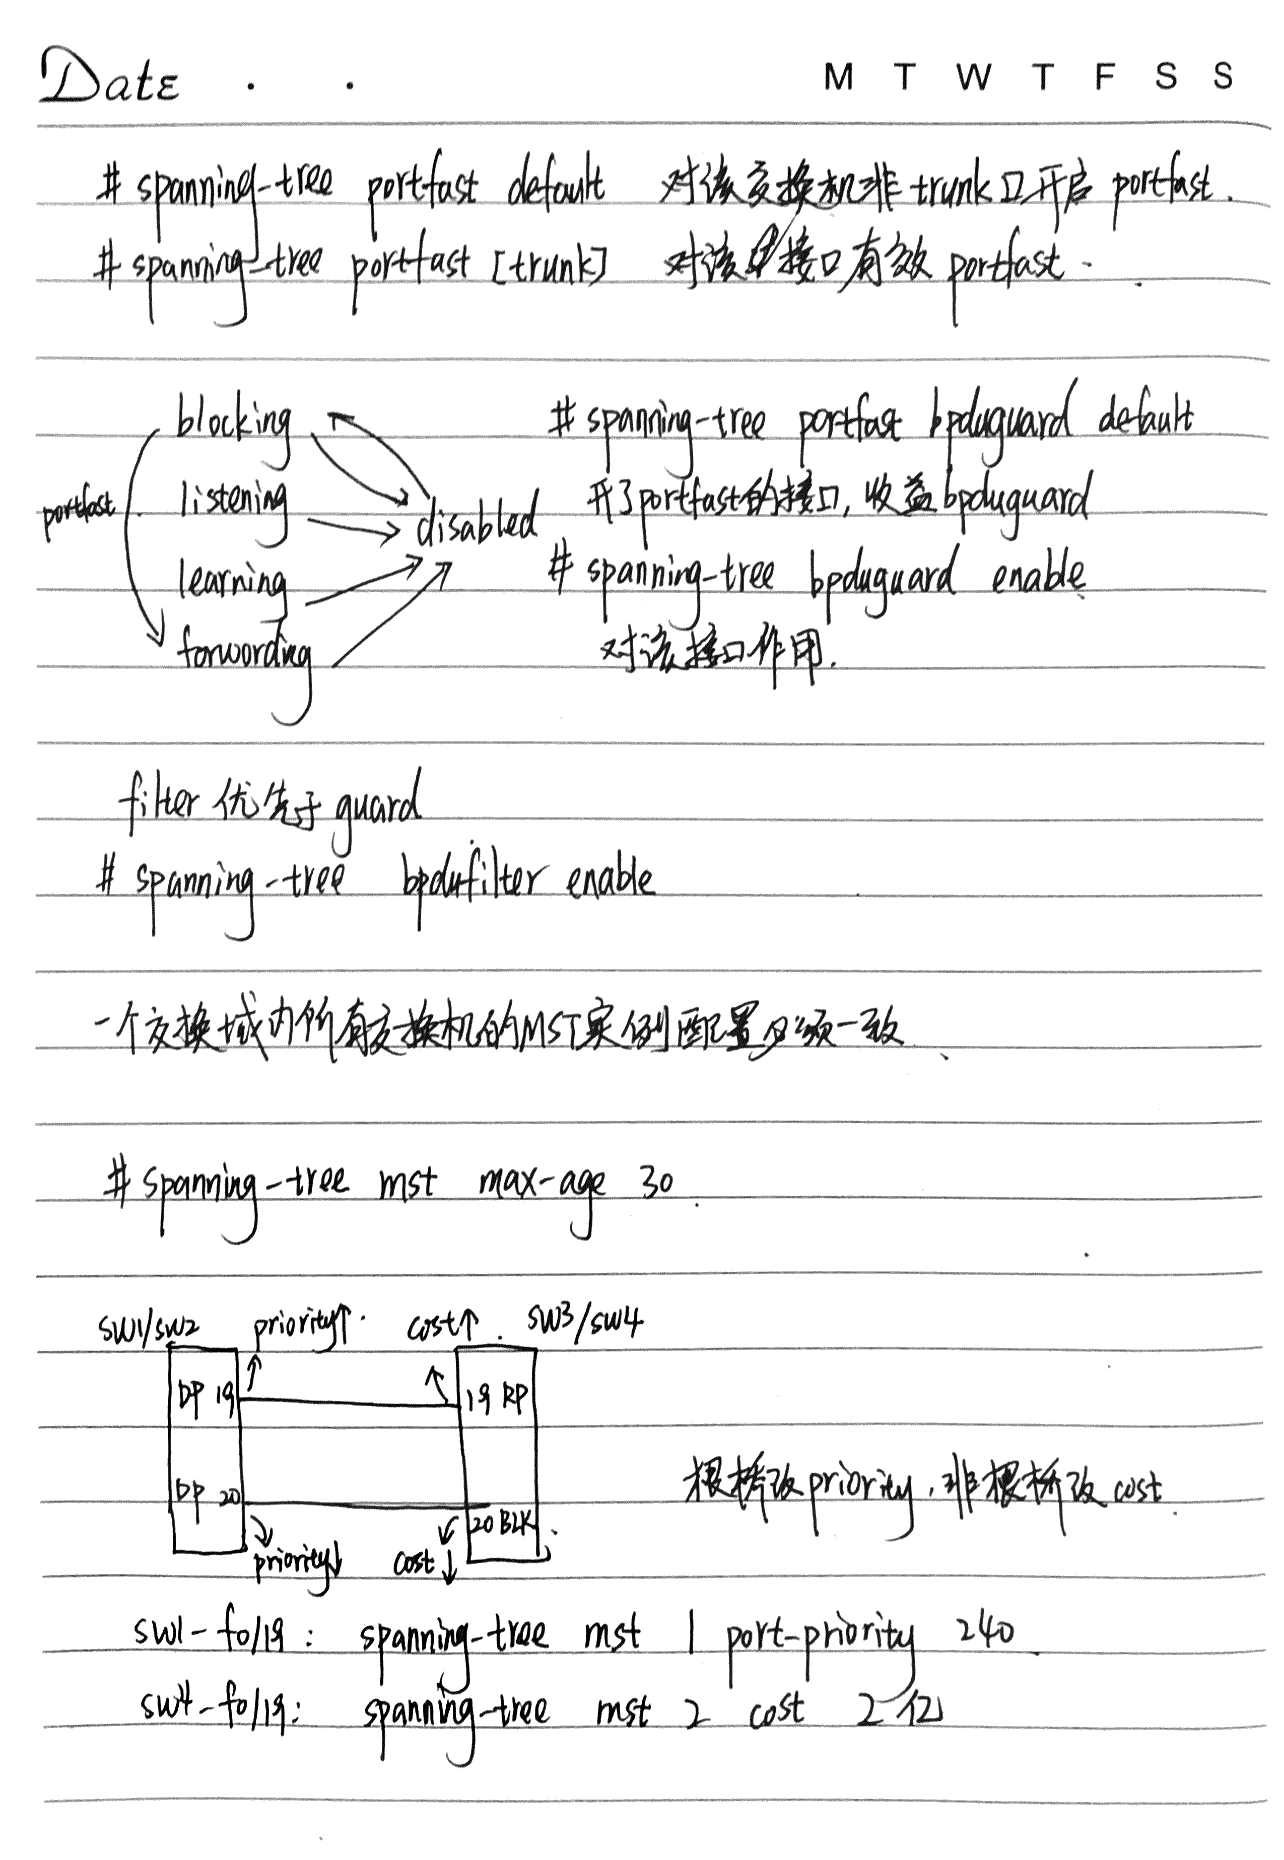 Date . . M T W T F S S
# spanning-tree portfast default 对该交换机非trunk口开启 portfast.
# spanning-tree portfast [trunk] 对该接口有效 portfast.
blocking
listening
learning
forwording
portfast
disabled
# spanning-tree portfast bpduguard default
开了portfast的接口, 收益bpduguard
# spanning-tree bpduguard enable
对该接口作用.
filter 优先于 guard
# spanning-tree bpdufilter enable
一个交换域内所有交换机的MST实例配置必须一致、
# spanning-tree mst max-age 30.
SW1/SW2 priority↑. cost↑. SW3/SW4
DP 19 19 RP
DP 20 20 BLK
priority↓ cost↓
根桥改priority, 非根桥改 cost.
SW1-f0/19: spanning-tree mst 1 port-priority 240
SW4-f0/19: spanning-tree mst 2 cost 2亿